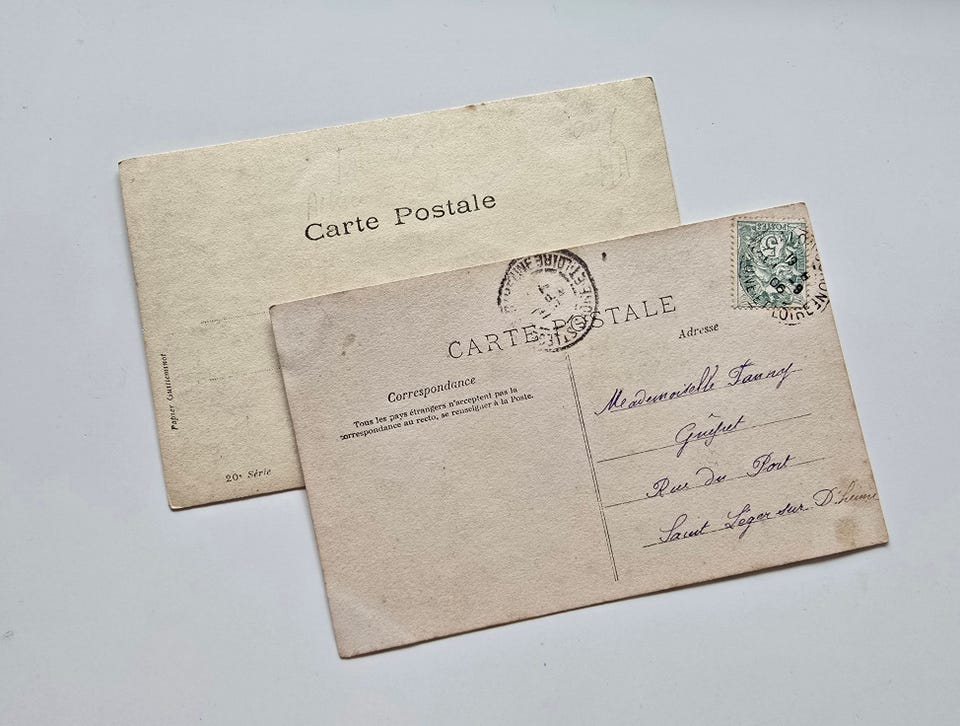 Carte Postale
Papier Guilleminot
20e Série
CARTE POSTALE
Correspondance
Tous les pays étrangers n'acceptent pas la
correspondance au recto, se renseigner à la Poste.
Adresse
POSTES
Mademoiselle Fanny
Rue du Port
Saint Léger sur D'heune
ET LOIRE